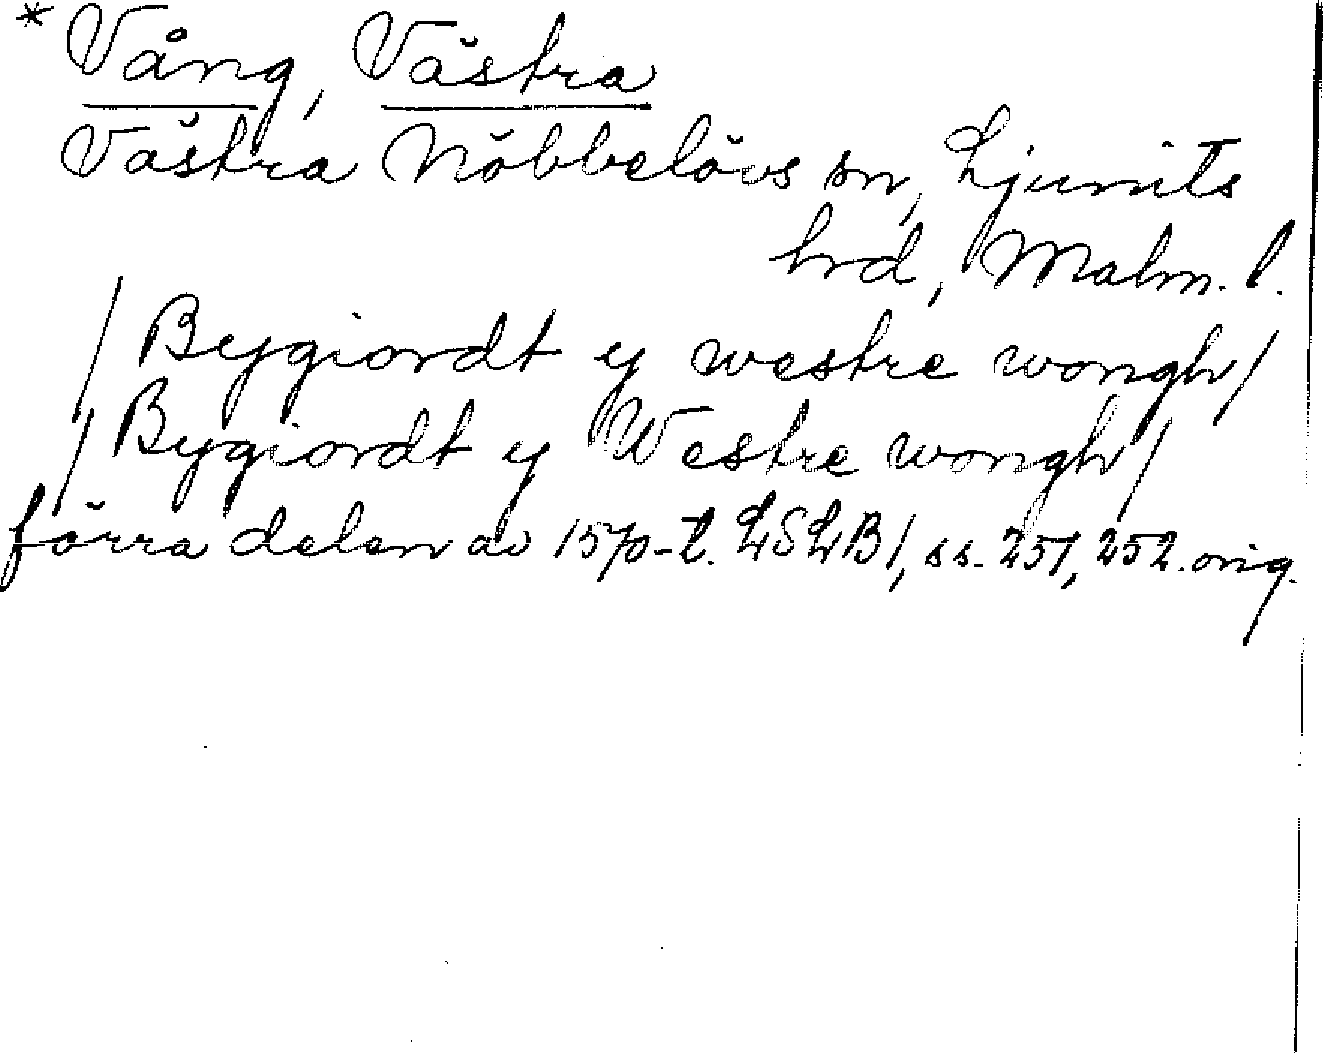 * Vång, Västra
Västra Nöbbelövs sn, Ljunits
hrd, Malm. l.
/ Bygiordt y westre wongh /
/ Bygiordt y Westre wongh /
förra delen av 1570-t. LSLB 1, ss. 251, 252. orig.